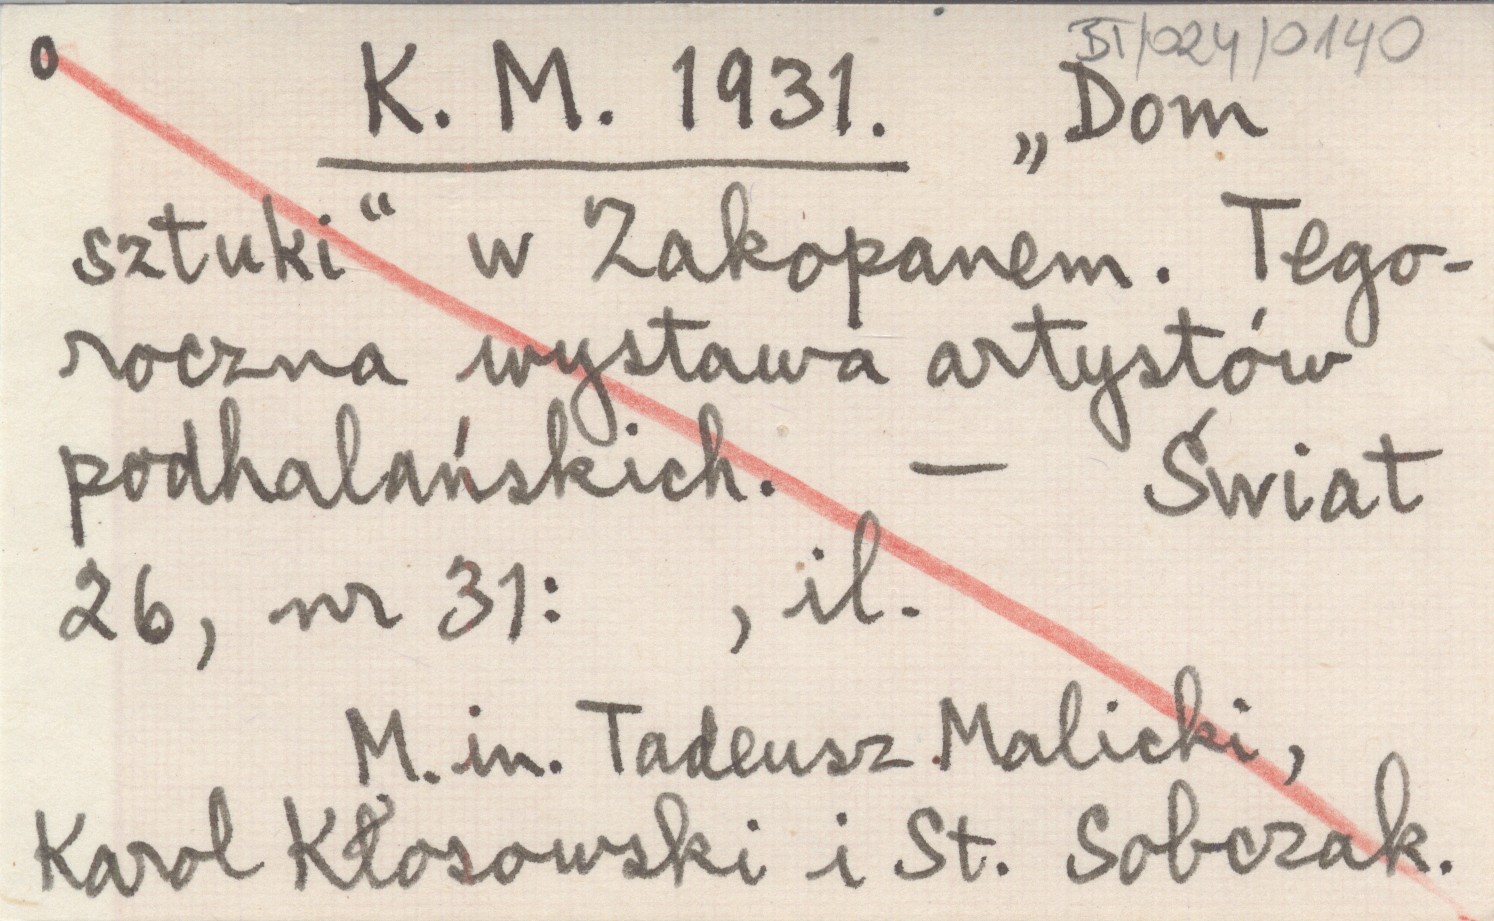 BT/024/0140
o K. M. 1931. „Dom
sztuki“ w Zakopanem. Tego-
roczna wystawa artystów
podhalańskich. — Świat
26, nr 31: , il.
M. in. Tadeusz Malicki,
Karol Kłosowski i St. Sobczak.